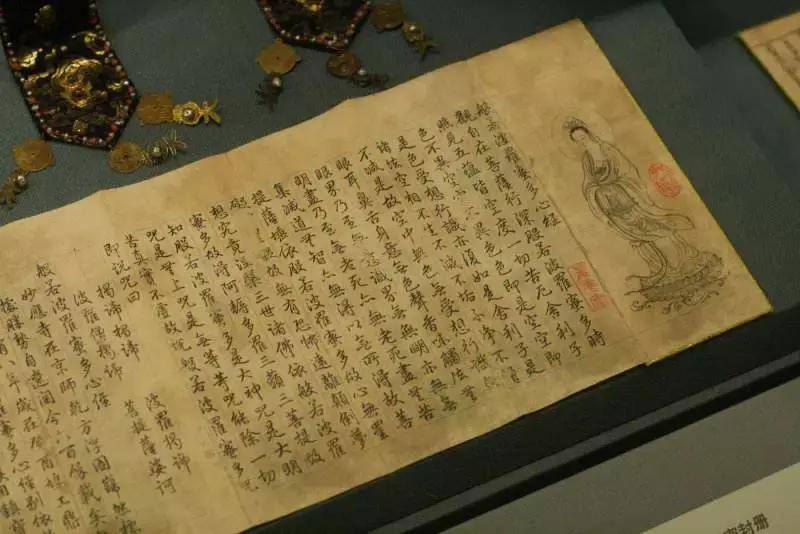 般若波羅蜜多心經
觀自在菩薩行深般若波羅蜜多時
照見五蘊皆空度一切苦厄舍利子
色不異空空不異色色即是空空即
是色受想行識亦復如是舍利子是
諸法空相不生不滅不垢不淨不增
不減是故空中無色無受想行識無
眼耳鼻舌身意無色聲香味觸法無
眼界乃至無意識界無無明亦無無
明盡乃至無老死亦無老死盡無苦
集滅道無智亦無得以無所得故菩
提薩埵依般若波羅蜜多故心無罣
礙無罣礙故無有恐怖遠離顛倒夢
想究竟涅槃三世諸佛依般若波羅
蜜多故得阿耨多羅三藐三菩提故
知般若波羅蜜多是大神咒是大明
咒是無上咒是無等等咒能除一切
苦真實不虛故說般若波羅蜜多咒
即說咒曰
揭諦揭諦 波羅揭諦
波羅僧揭諦 菩提薩婆訶
般若波羅蜜多心經
妙應寺在京師乾方浮圖歸然標
封册